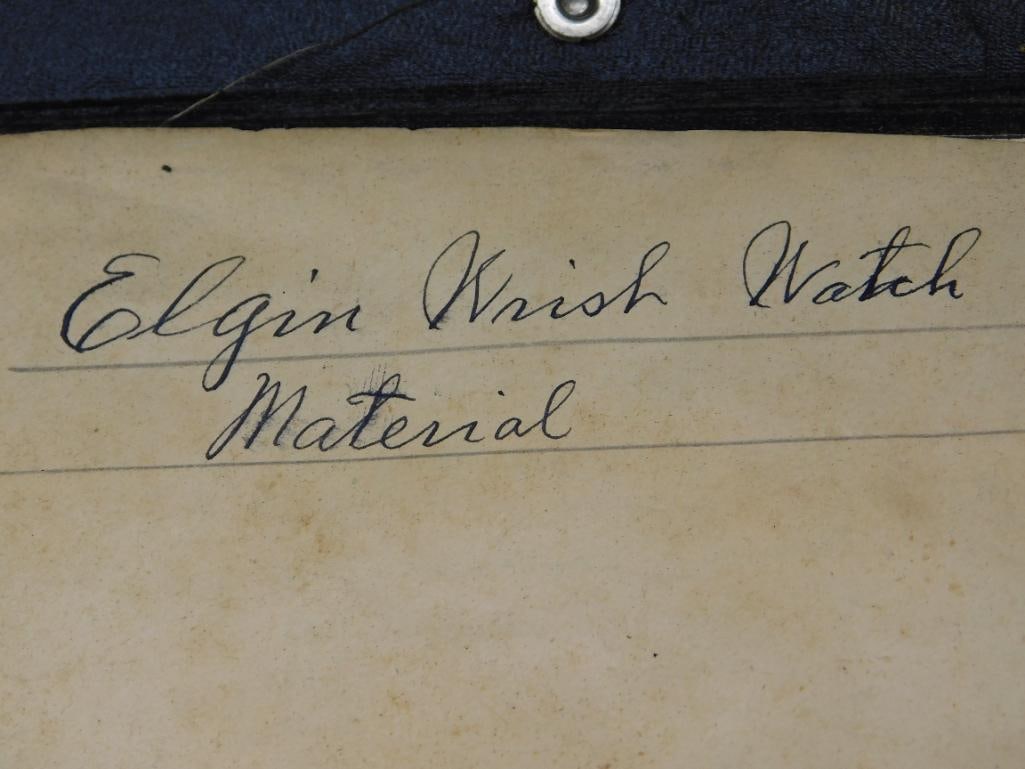 Elgin Wrist Watch
Material